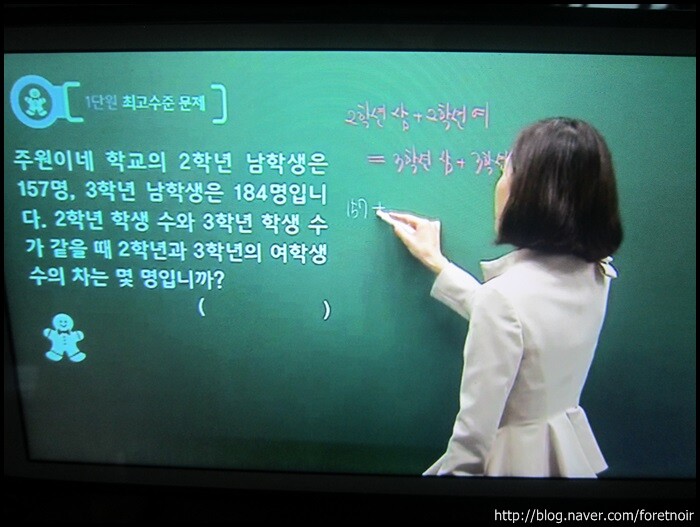 1단원 최고수준 문제
주원이네 학교의 2학년 남학생은
157명, 3학년 남학생은 184명입니
다. 2학년 학생 수와 3학년 학생 수
가 같을 때 2학년과 3학년의 여학생
수의 차는 몇 명입니까?
( )
2학년 남 + 2학년 여
= 3학년 남 + 3학년
157 +
http://blog.naver.com/foretnoir